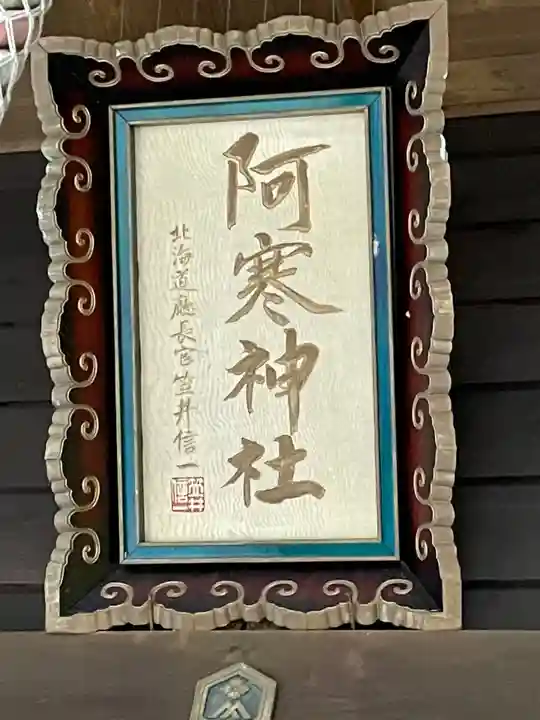 阿寒神社
北海道廳長官笠井信一